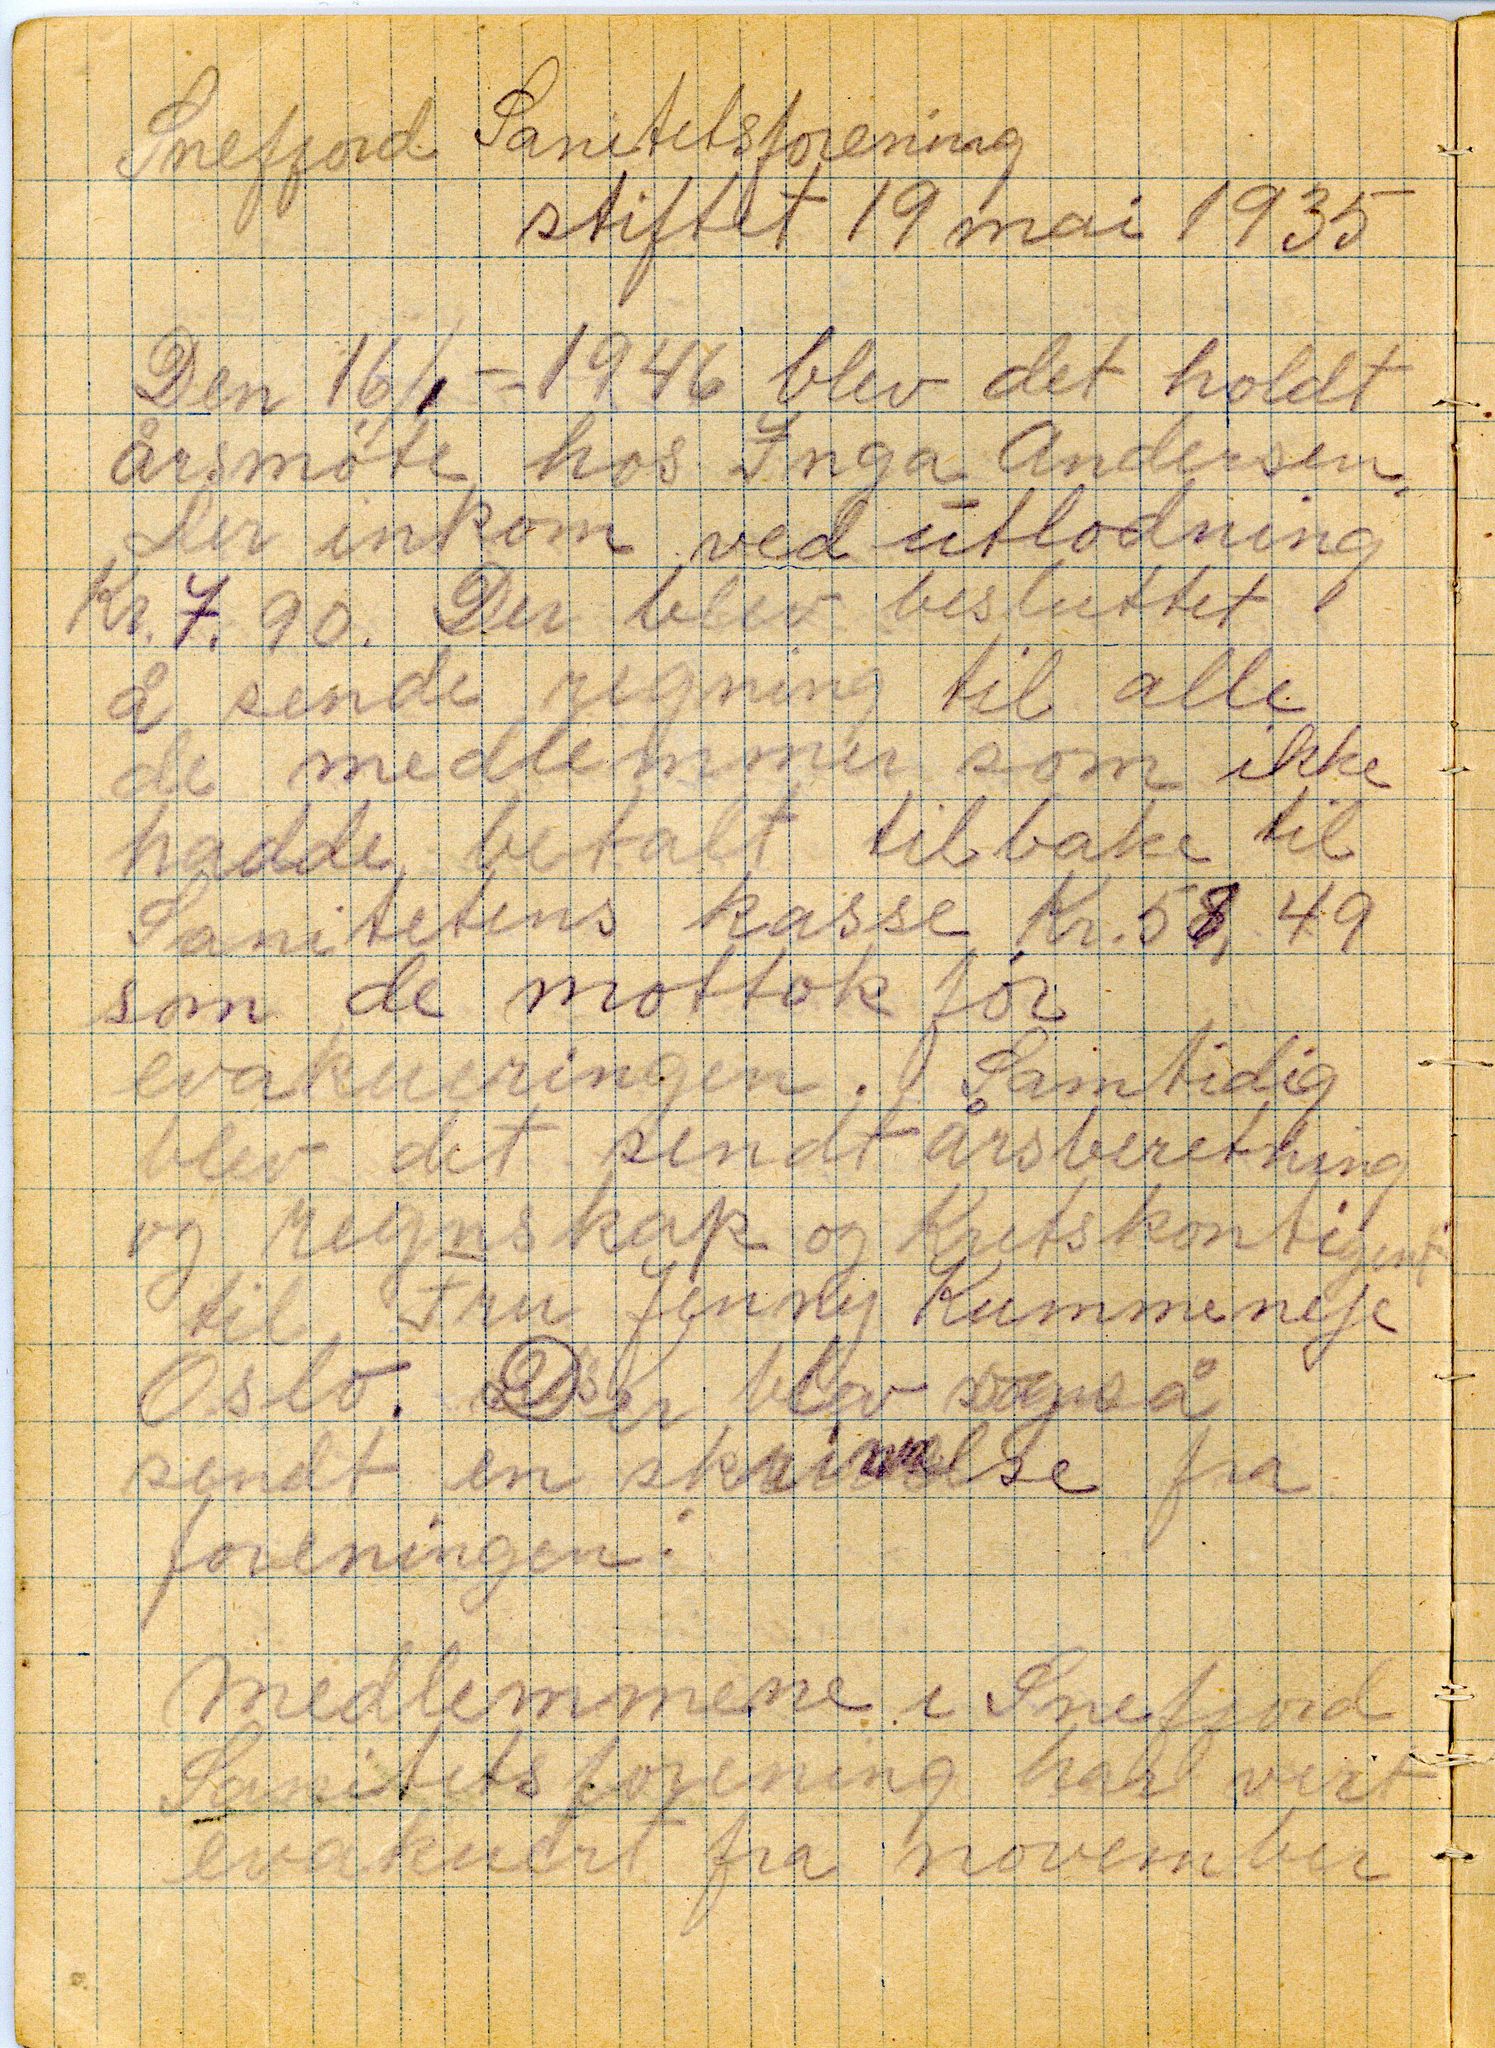 Snefjord Sanitetsforening
stiftet 19 mai 1935
Den 16/1 - 1946 blev det holdt
årsmöte hos Inga Andersen.
Der inkom ved utlodning
Kr. 7. 90. Der blev besluttet
å sende regning til alle
de medlemmer som ikke
hadde betalt tilbake til
Sanitetens kasse Kr. 58, 49
som de mottok för
evakueringen. Samtidig
blev det sendt årsberetning
og regnskap og Kretskontigent
til Fru Jenny Kummeneje
Oslo. Der blev også
sendt en skrivelse fra
foreningen:
Medlemmene i Snefjord
Sanitetsforening har vert
evakuert fra november